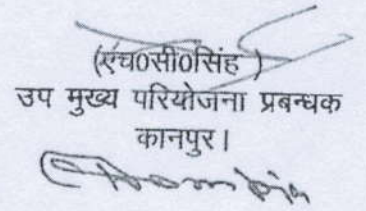 (एच०सी०सिंह )
उप मुख्य परियोजना प्रबन्धक
कानपुर।